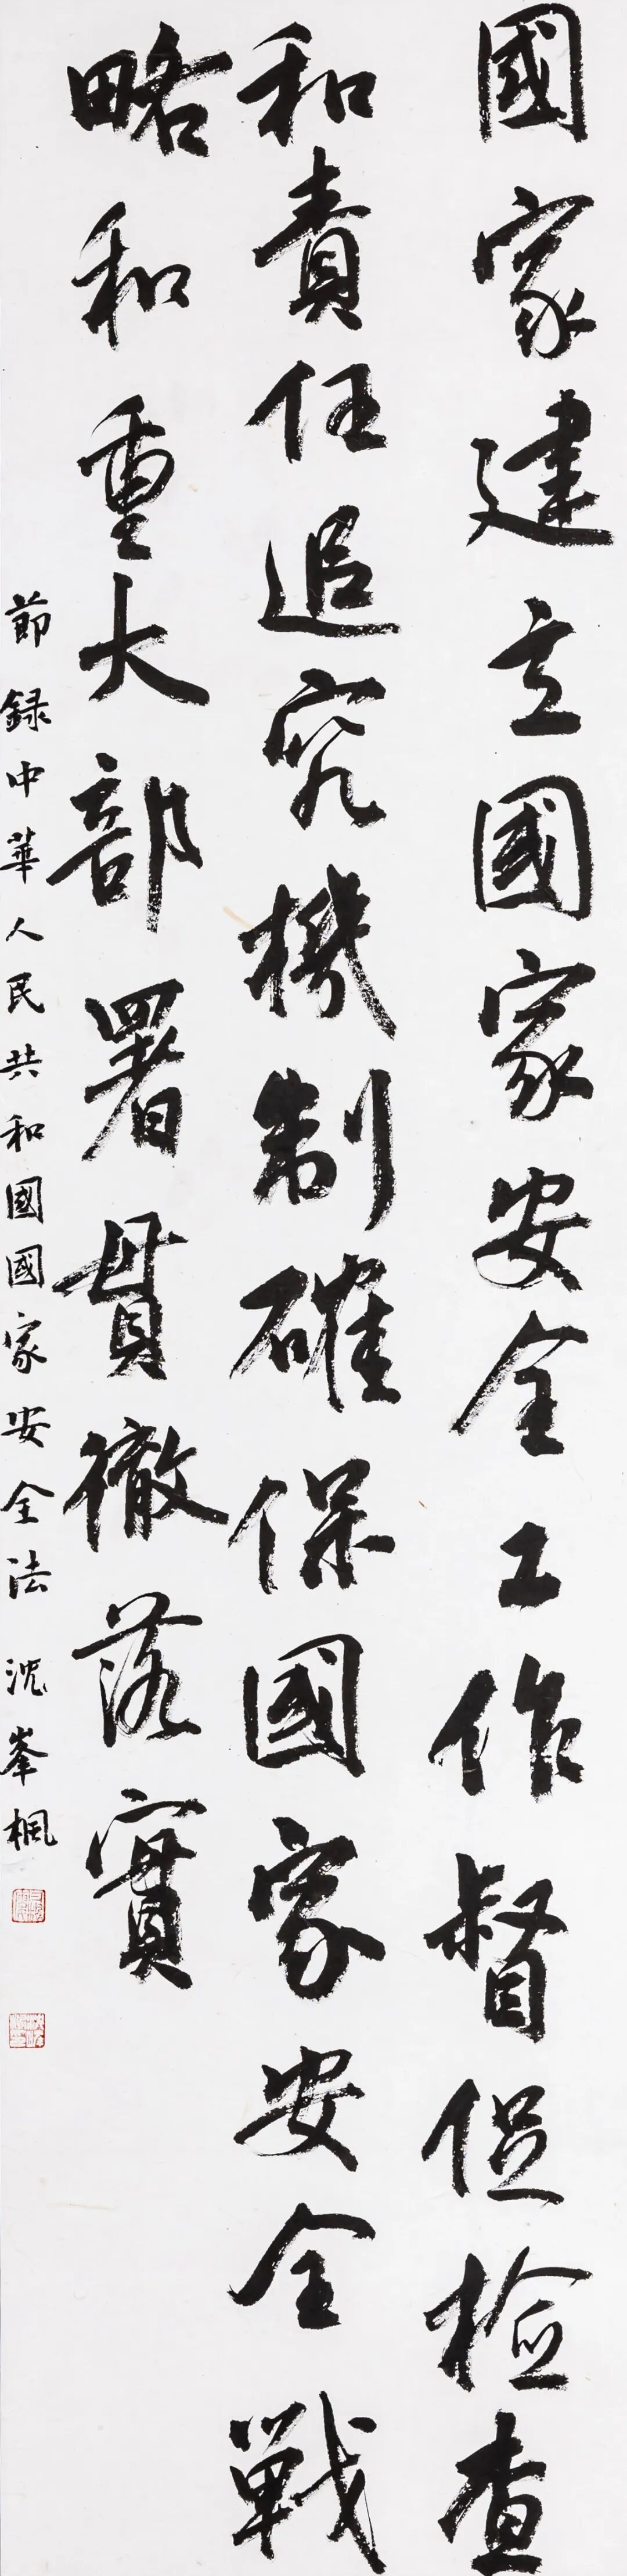 國家建立國家安全工作督促檢查
和責任追究機制確保國家安全戰
略和重大部署貫徹落實
節録中華人民共和國國家安全法 沈峯楓